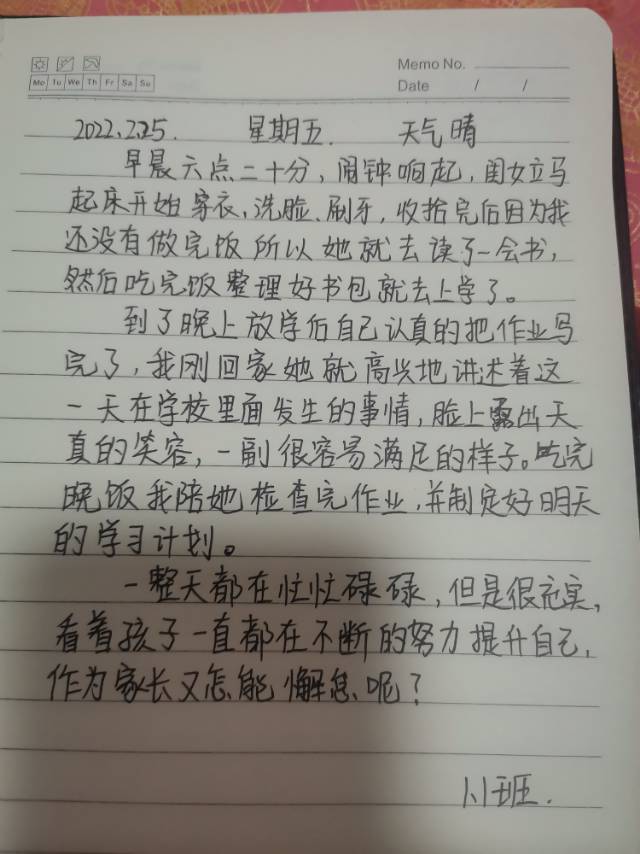 Memo No.
Mo Tu We Th Fr Sa Su
Date / /
2022.2.25. 星期五. 天气晴
早晨六点二十分，闹钟响起，闺女立马
起床开始穿衣、洗脸、刷牙，收拾完后因为我
还没有做完饭所以她就去读了一会书，
然后吃完饭整理好书包就去上学了。
到了晚上放学后自己认真的把作业写
完了，我刚回家她就高兴地讲述着这
一天在学校里面发生的事情，脸上露出天
真的笑容，一副很容易满足的样子。吃完
晚饭我陪她检查完作业，并制定好明天
的学习计划。
一整天都在忙忙碌碌，但是很充实，
看着孩子一直都在不断的努力提升自己，
作为家长又怎能懈怠呢？
班.